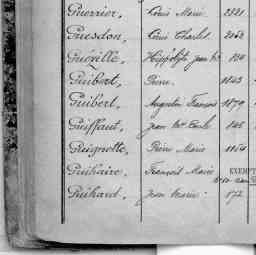 Guerrier, Louis Marie. 2321
Guesdon, Louis Charles 2063
Guéville, Hippolyte Jean
Guibert, Pierre. 1843
Guibert, Augustin François 1879
Guiffaut, Jean 
Guignette, Pierre Marie 1164
Guihaire, François Marie
EXEMPT
Guihard, Jean Marie. 172